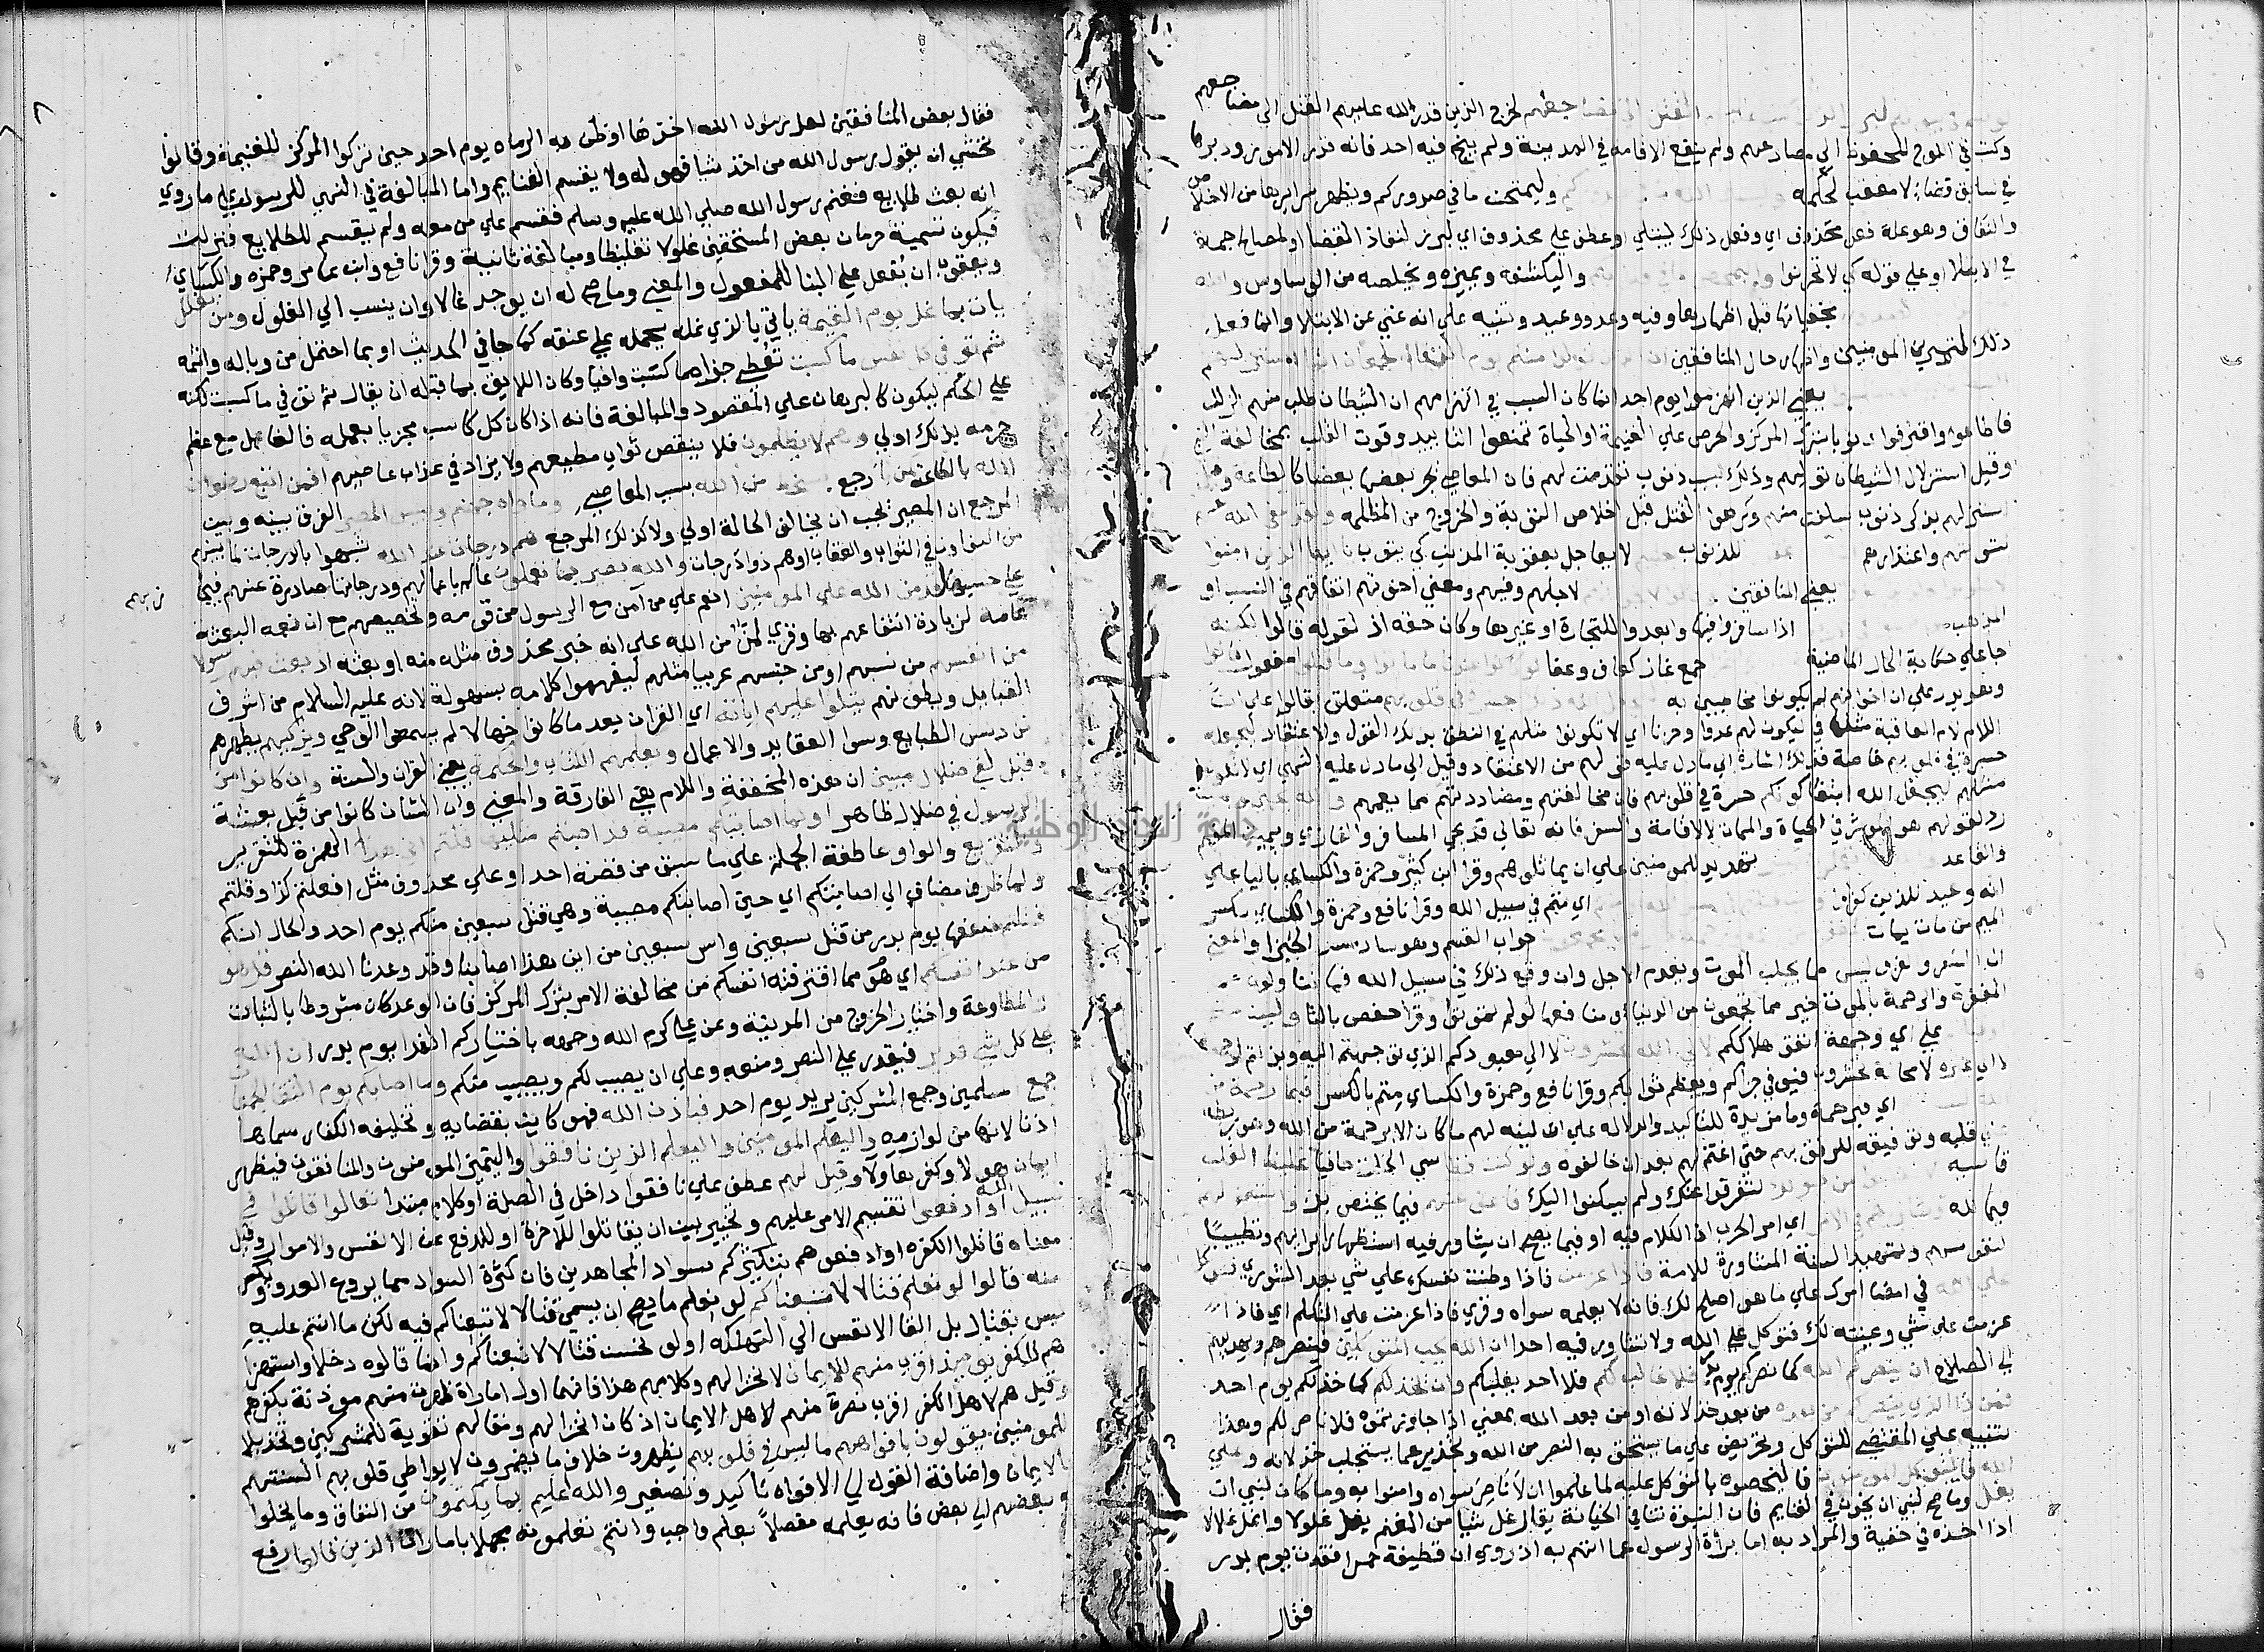 لخرج الذين قدر الله عليهم القتل الي مضاجعهم
وكتب في اللوح المحفوظ الي مصارعهم ولم ينفع الاقامه في المدينة ولم ينج فيه احد فانه قدر الامور ودبرها
في سابق قضائه لا معقب لحكمه وليمتحن ما في صدوركم ويظهر سرايرها من الاخلاص
والنفاق وهو علة فعل محذوف اي وفعل ذلك ليبتلي او عطف علي محذوف اي لبرز لنفاذ القضا او لمصالح جمة
او علي قوله كي لا تحزنوا وليكشفه ويميزه ويخلصه من الوساوس
بخفياتها قبل اظهارها وفيه وعد ووعيد وتنبيه علي انه غني عن الابتلا وانما فعل
ذلك لتمرين المومنين واظهار حال المنافقين
يعني الذين انهزموا يوم احد انما كان السبب في انهزامهم ان الشيطان طلب منهم الزلل
فاطاعوا واقترفوا ذنوبا بترك المركز والحرص علي الغنيمة او الحياة فمنعوا التاييد وقوة القلب بمخالفة النبي
وقيل استزلال الشيطان توليهم وذلك بسبب ذنوب تقدمت لهم فان المعاصي يجر بعضها بعضا كالطاعة وقيل
استزلهم بذكر ذنوب سلفت منهم وكرهوا القتل قبل اخلاص التوبة والخروج من المظلمه
لتوبتهم واعتذارهم للذنوب لا يعاجل بعقوبة المذنب كي يتوب
يعني المنافقين لاجلهم وفيهم ومعني اخوتهم اتفاقهم في النسب او
المذهب اذا سافروا فيها وابعدوا للتجارة او غيرها وكان حقه اذ لقوله قالوا لكنه
جا علي حكاية الحال الماضية جمع غاز كعاف وعفا
وهو يدل علي ان اخوانهم لم يكونوا مخاطبين به متعلق بقالوا علي ان
اللام لام العاقبة مثلها في ليكون لهم عدوا وحزنا اي لا تكونوا مثلهم في النطق بذلك القول والاعتقاد ليجعله
حسرة في قلوبهم خاصة فذلك اشارة اي ما دل عليه قولهم من الاعتقاد وقيل الي ما دل عليه النهي اي لا تكونوا
مثلهم ليجعل الله انتفا كونكم حسرة في قلوبهم فان مخالفتهم ومضادتهم مما يغمهم
رد لقولهم هو الموثر في الحياة والممات لا الاقامة والسفر فانه تعالي قد يحيي المسافر والغازي ويميت المقيم
والقاعد تهديد للمومنين علي ان يماثلوهم وقرا ابن كثير وحمزة والكساي باليا علي
انه وعيد للذين كفروا اي متم في سبيل الله وقرا نافع وحمزة والكساي بكسر
الميم من مات يمات جواب القسم وهو ساد مسد الجزا والمعني
ان السفر والغزو ليس مما يجلب الموت ويقدم الاجل وان وقع ذلك في سبيل الله فما تنالونه من
المغفرة والرحمة بالموت خير مما تجمعون من الدنيا ومنافعها لو لم تموتوا وقرا حفص باليا
علي اي وجهة اتفق هلاككم لا الي معبودكم الذي توجهتم اليه وبذلتم
لا محالة تحشرون فيوفي جزاكم ويعظم ثوابكم وقرا نافع وحمزة والكساي متم بالكسر فبما رحمة
اي فبرحمة وما مزيدة للتاكيد والدلاله علي ان لينه لهم ما كان الا برحمة من الله وهو ربطه
علي قلبه وتوفيقه للرفق بهم حتي اغتم لهم بعد ان خالفوه ولو كنت فظا سي الخلق جافيا غليظ القلب
قاسيه لتفرقوا عنك ولم يسكنوا اليك فاعف عنهم فيما يختص بك واستغفر لهم
فيما لله اي امر الحرب اذ الكلام فيه او فيما يصح ان يشاور فيه استظهارا برايهم وتطييبا
لنفوسهم وتمهيدا لسنة المشاورة للامة فاذا وطنت نفسك علي شي بعد الشوري فتوكل
علي الله في امضا امرك علي ما هو اصلح لك فانه لا يعلمه سواه وقري فاذا عزمت علي التكلم اي فاذا
عزمت علي شي وعينته لك فتوكل علي الله ولا تشاور فيه احدا ان الله يحب المتوكلين فينصرهم ويهديهم
الي الصلاح ان ينصركم الله كما نصركم يوم بدر فلا غالب لكم فلا احد يغلبكم وان يخذلكم كما خذلكم يوم احد
فمن ذا الذي ينصركم من بعده من بعد خذلانه او من بعد الله بمعني اذا جاوزتموه فلا ناصر لكم وهذا
تنبيه علي المقتضي للتوكل وتحريض علي ما يستحق به النصر من الله وتحذير عما يستجلب خذلانه وعلي
الله فليتوكل المومنون فليخصوه بالتوكل عليه لما علموا ان لا ناصر سواه وامنوا به وما كان لنبي ان
يغل وما صح لنبي ان يخون في الغنايم فان النبوة تنافي الخيانة يقال غل شيا من المغنم يغل غلولا واغل غلالا
اذا اخذه في خفية والمراد به اما براة الرسول عما اتهم به اذ روي ان قطيفة حمرا فقدت يوم بدر
فقال
فقال بعض المنافقين لعل رسول الله اخذها او ظن به الرماه يوم احد حين تركوا المركز للغنيمة وقالوا
نخشي ان يقول رسول الله من اخذ شيا فهو له ولا يقسم الغنايم واما المبالغة في النهي للرسول علي ما روي
انه بعث طلايع فغنم رسول الله صلي الله عليه وسلم فقسم علي من معه ولم يقسم للطلايع فنزلت
فيكون تسمية حرمان بعض المستحقين غلولا تغليظا ومبالغة ثانية وقرا نافع وابن عامر وحمزه والكساي
ويعقوب ان يُغل علي البنا للمفعول والمعني وما صح له ان يوجد غالا او ان ينسب الي الغلول ومن يغلل
يات بما غل يوم القيمة ياتي بالذي غله يحمله علي عنقه كما جا في الحديث او بما احتمل من وباله واثمه
ثم توفي كل نفس ما كسبت تعطي جزا ما كسبت وافيا وكان اللايق بما قبله ان يقال ثم توفي ما كسبت لكنه
علي الحكم ليكون كالبرهان علي المقصود والمبالغة فانه اذا كان كل كاسب مجزيا بعمله فالغال مع عظم
جرمه بذلك اولي وهم لا يظلمون فلا ينقص ثواب مطيعهم ولا يزاد في عذاب عاصيهم افمن اتبع رضوان
الله بالطاعة رجع بسخط من الله بسبب المعاصي وماواه جهنم وبيس المصير الفرق بينه وبين
المرجع ان المصير يجب ان يخالف الحالة اولي ولا كذلك المرجع هم درجات عند الله شبهوا بالدرجات لما بينهم
من التفاوت في الثواب والعقاب او هم ذووا درجات والله بصير بما يعملون عالم باعمالهم ودرجاتها صادرة عنهم فيجازيهم
علي حسبها لقد من الله علي المومنين انعم علي من آمن مع الرسول من قومه وتخصيصهم مع ان نعمه البعثة
عامه لزيادة انتفاعهم بها وقري لمن من الله علي انه خبر محذوف مثل منه او بعثه اذ بعث فيهم رسولا
من انفسهم من نسبهم او من جنسهم عربيا مثلهم ليفهموا كلامه بسهولة لانه عليه السلام من اشرف
القبايل وبطونهم يتلوا عليهم اياته اي القران بعد ما كانوا جهالا لم يسمعوا الوحي ويزكيهم يطهرهم
من دنس الطبايع وسوا العقايد والاعمال ويعلمهم الكتاب والحكمة يعني القران والسنة وان كانوا من
قبل لفي ضلال مبين ان هذه المخففة واللام هي الفارقة والمعني وان الشان كانوا من قبل بعثة
الرسول في ضلال ظاهر اولما اصابتكم مصيبة قد اصبتم مثليها قلتم اني هذا الهمزة للتقرير
والتقريع والواو عاطفة الجملة علي ما سبق من قصة احد او علي محذوف مثل افعلتم كذا وقلتم
ولما ظرفه مضاف الي اصابتكم اي حين اصابتكم مصيبة وهي قتل سبعين منكم يوم احد والحال انكم
نلتم ضعفها يوم بدر من قتل سبعين واسر سبعين من اين هذا اصابنا وقد وعدنا الله النصر قل هو
من عند انفسكم اي هو مما اقترفته انفسكم من مخالفة الامر بترك المركز فان الوعد كان مشروطا بالثبات
والمطاوعة واختيار الخروج من المدينة وعن علي كرم الله وجهه باختياركم الفدا يوم بدر ان الله
علي كل شي قدير فيقدر علي النصر ومنعه وعلي ان يصيب لكم ويصيب منكم وما اصابكم يوم التقي الجمعان
جمع المسلمين وجمع المشركين يريد يوم احد فباذن الله فهو كاين بقضايه وتخليته الكفار سماها
اذنا لانها من لوازمه وليعلم المومنين وليعلم الذين نافقوا وليتميز المومنون والمنافقون فيظهر
ايمان هولا وكفر هاولا وقيل لهم عطف علي نافقوا داخل في الصلة او كلام مبتدا تعالوا قاتلوا في
سبيل الله او ادفعوا تقسيم الامر عليهم وتخيير بين ان يقاتلوا للآخرة او للدفع عن الانفس والاموال وقيل
معناه قاتلوا الكفره او ادفعوهم بتكثيركم سواد المجاهدين فان كثرة السواد مما يروع العدو ويكسر
منه قالوا لو نعلم قتالا لاتبعناكم لو نعلم ما يصح ان يسمي قتالا لاتبعناكم فيه لكن ما انتم عليه
ليس بقتال بل القا الانفس الي التهلكه او لو نحسن قتالا لاتبعناكم وانما قالوه دخلا واستهزا
هم للكفر يوميذ اقرب منهم للايمان لانخزالهم وكلامهم هذا فانهما اول اماراة ظهرت منهم موذنة بكفرهم
وقيل هم لاهل الكفر اقرب نصرة منهم لاهل الايمان اذ كان انخزالهم ومقالهم تقوية للمشركين وتخذيلا
للمومنين يقولون بافواههم ما ليس في قلوبهم يظهرون خلاف ما يضمرون لا يواطي قلوبهم السنتهم
بالايمان واضافة القول الي الافواه تاكيد وتصغير والله اعلم بما يكتمون من النفاق وما يخلوا
به بعضهم الي بعض فانه يعلمه مفصلا بعلم واجب وانتم تعلمونه مجملا بامارات الذين قالوا رفع